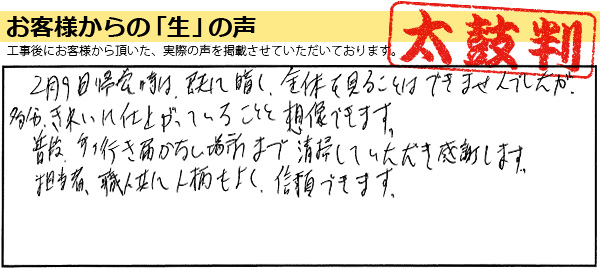 お客様からの「生」の声
太鼓判
工事後にお客様から頂いた、実際の声を掲載させていただいております。
2月9日帰宅時は、既に暗く、全体を見ることはできませんでしたが、
多分、きれいに仕上がっていることと想像できます。
普段、手が行き届かない場所まで清掃していただき感謝します。
担当者、職人共に人柄もよく、信頼できます。